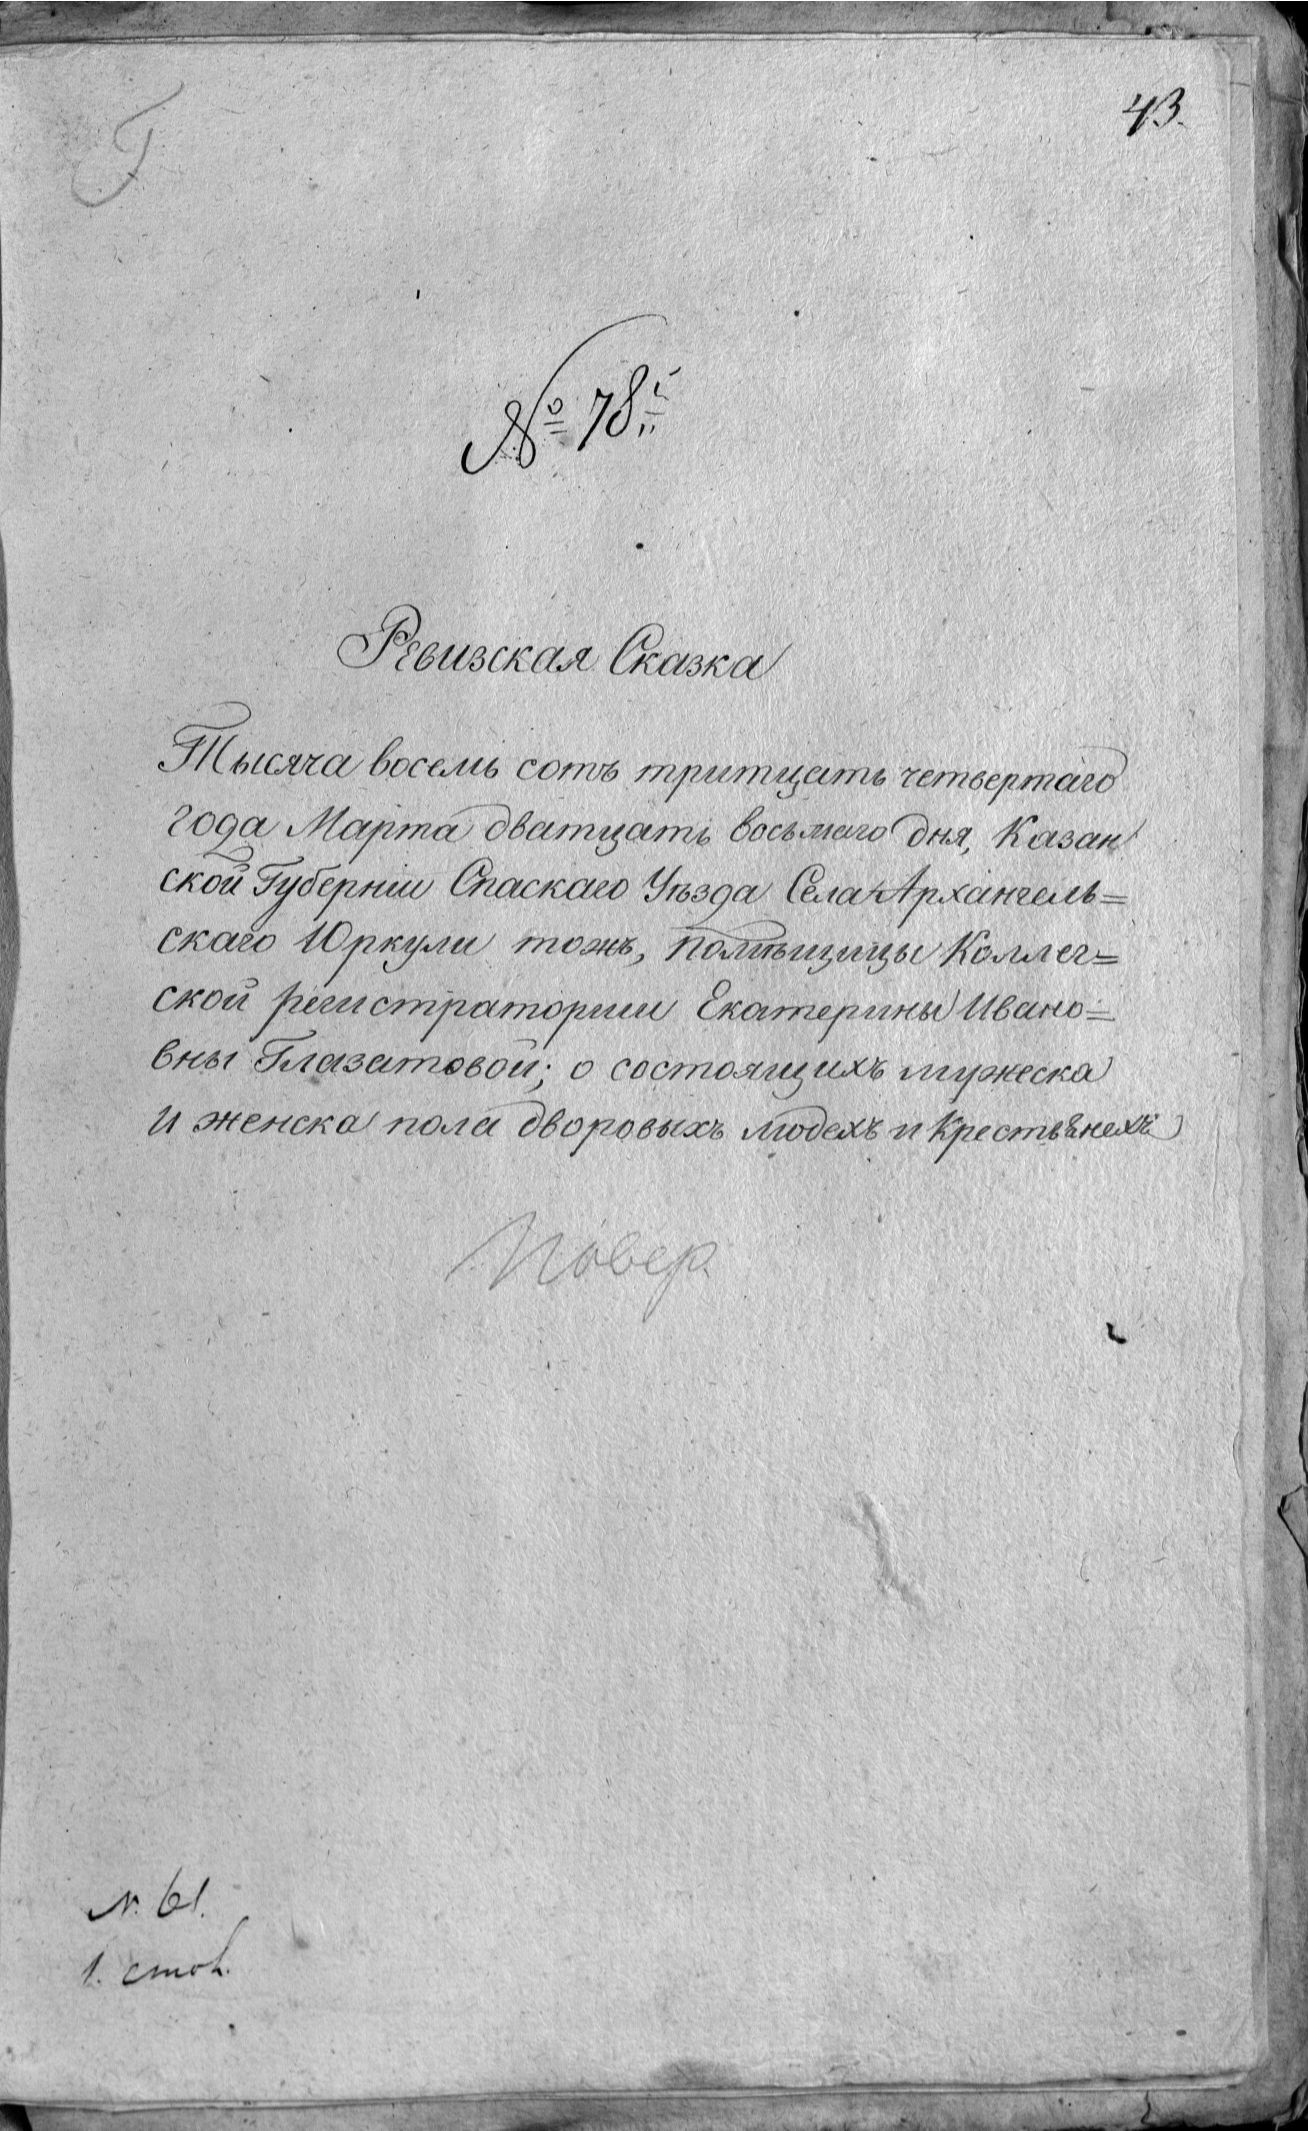 43.
Г
№ 78й
Ревизская Сказка
Тысяча восемь сотъ тритцать четвертаго
года Марта дватцать восьмаго дня, Казан
ской Губерніи Спаскаго Уѣзда Села Архангель=
скаго Юркули тожъ, помѣщицы Коллег=
ской регистраторши Екатерины Ивано=
вны Глазатовой; о состоящихъ мужеска
и женска пола дворовыхъ людехъ и Крестьянехъ
Повер.
N. 61.
1.